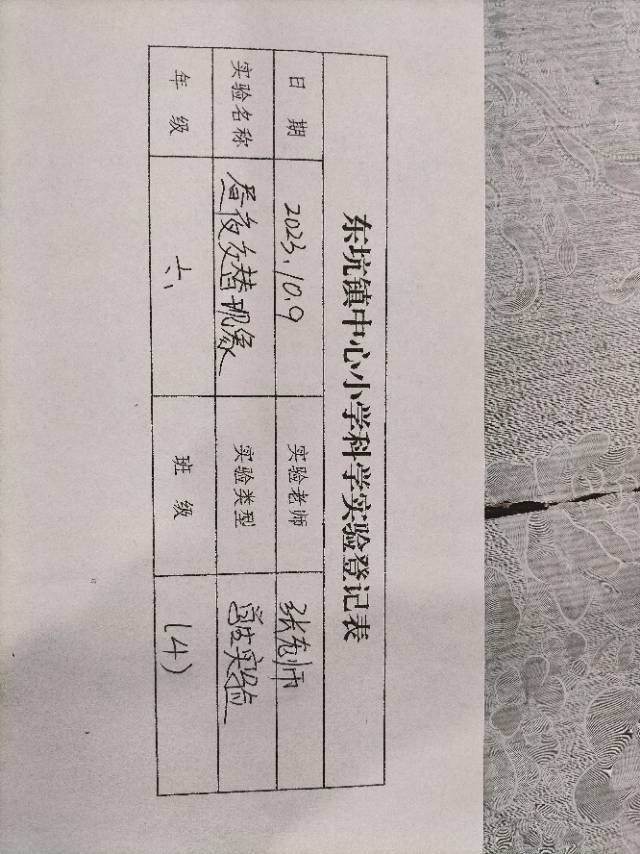 东坑镇中心小学科学实验登记表
日 期 2023.10.9 实验老师 张老师
实验名称 昼夜交替现象 实验类型 实验
年 级 六 班 级 (4)